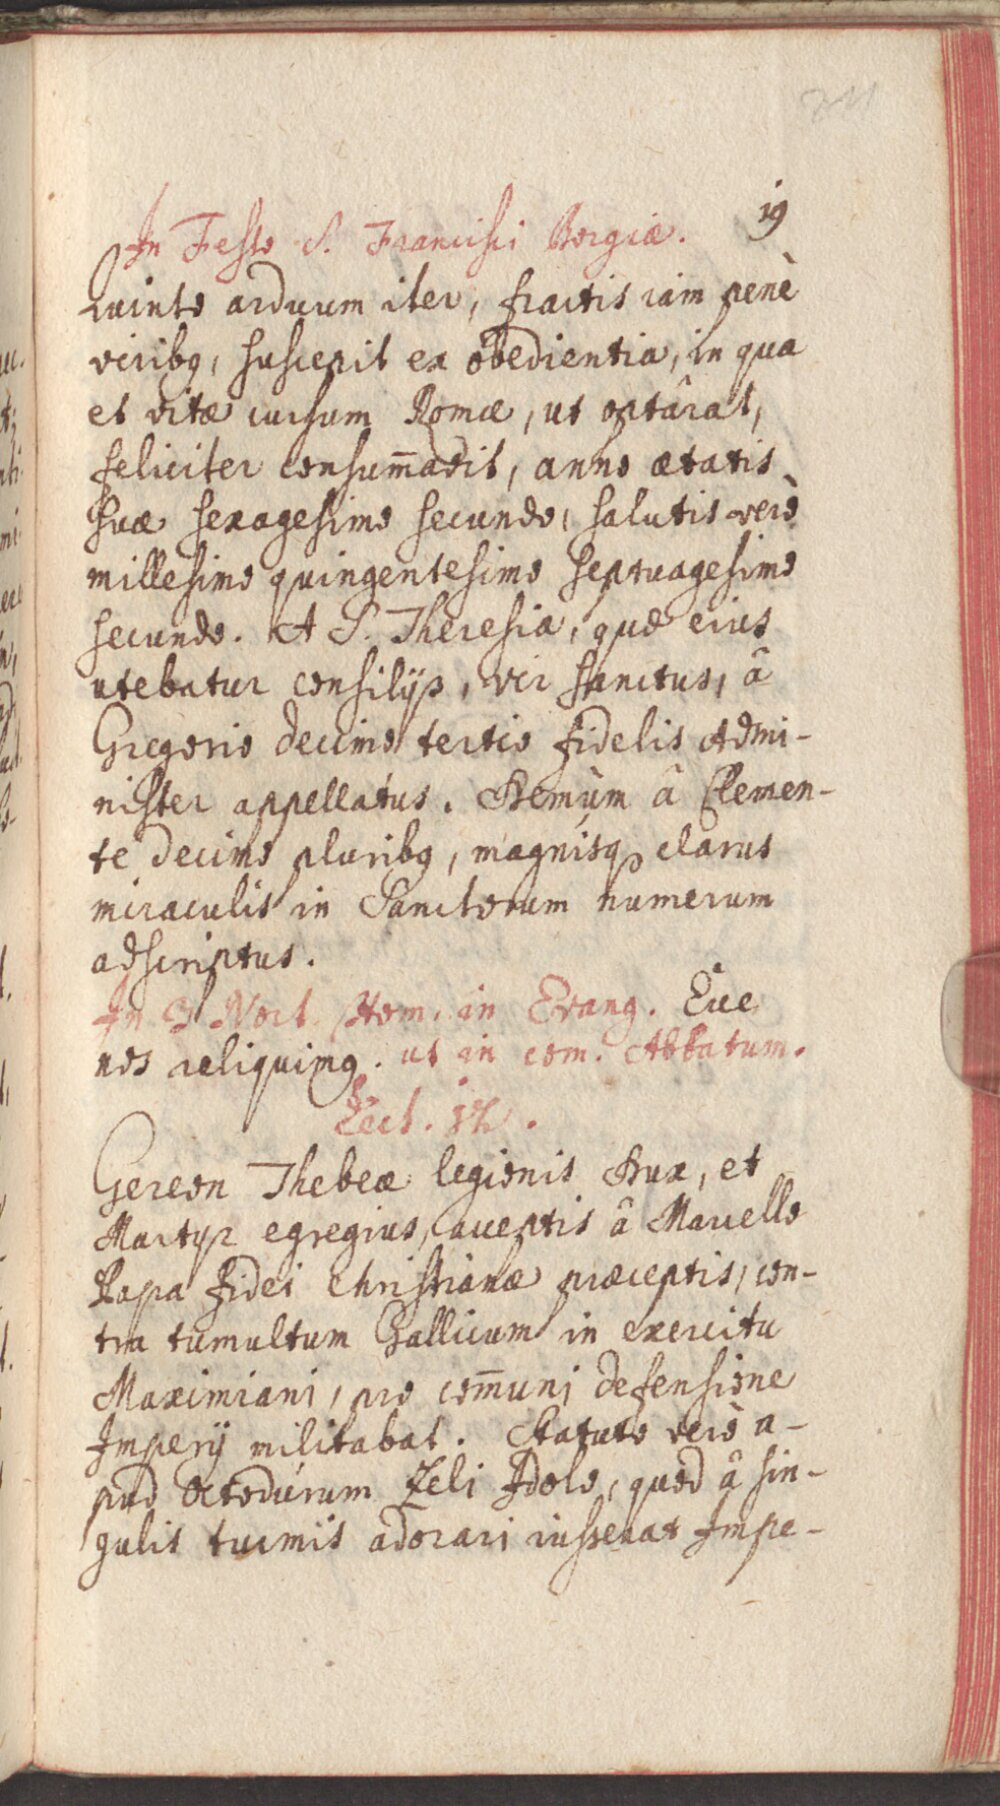 In Festo S. Francisci Borgiæ. 19
Quinto arduum iter, fractis iam penè
viribꝫ, suscepit ex obedientia, in qua
et vitæ cursum Romæ, ut optârat,
feliciter consum̄avit, anno ætatis
suæ sexagesimo secundo, salutis verò
millesimo quingentesimo septuagesimo
secundo. A S. Theresia, quæ eius
utebatur consilijs, vir sanctus, â
Gregorio decimo tertio fidelis Admi-
nister appellatus. Demùm â Clemen-
te decimo pluribꝫ, magnisqꝫ clarus
miraculis in Sanctorum numerum
adscriptus.
In 3 Noct. Hom. in Evang. Ecce
nos reliquimꝫ. ut in com. Abbatum.
Lect. IX.
Gereon Thebeæ legionis Dux, et
Martyr egregius, acceptis â Marcello
Papa fidei Christianæ præceptis, con-
tra tumultum Gallicum in exercitu
Maximiani, pro com̄uni defensione
Imperij militabat. Statuto verò a-
pud Octodurum Zeli Idolo, quod â sin-
gulis turmis adorari iusserat Impe-